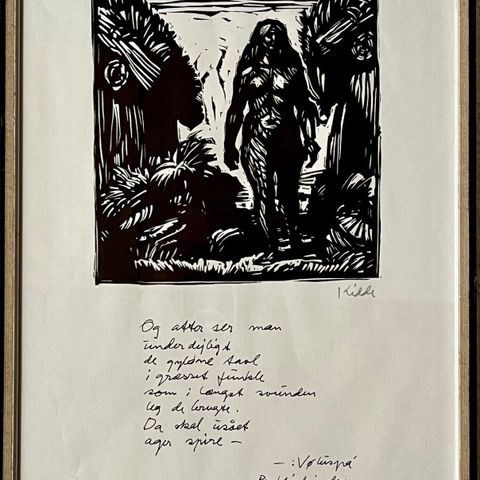 Kidde
Og atter ser man
underdejligt
de gyldne tavl
i græsset funkle
som i længst svunden
leg de brugte.
Da skal usået
ager spire —
— : Vøluspá